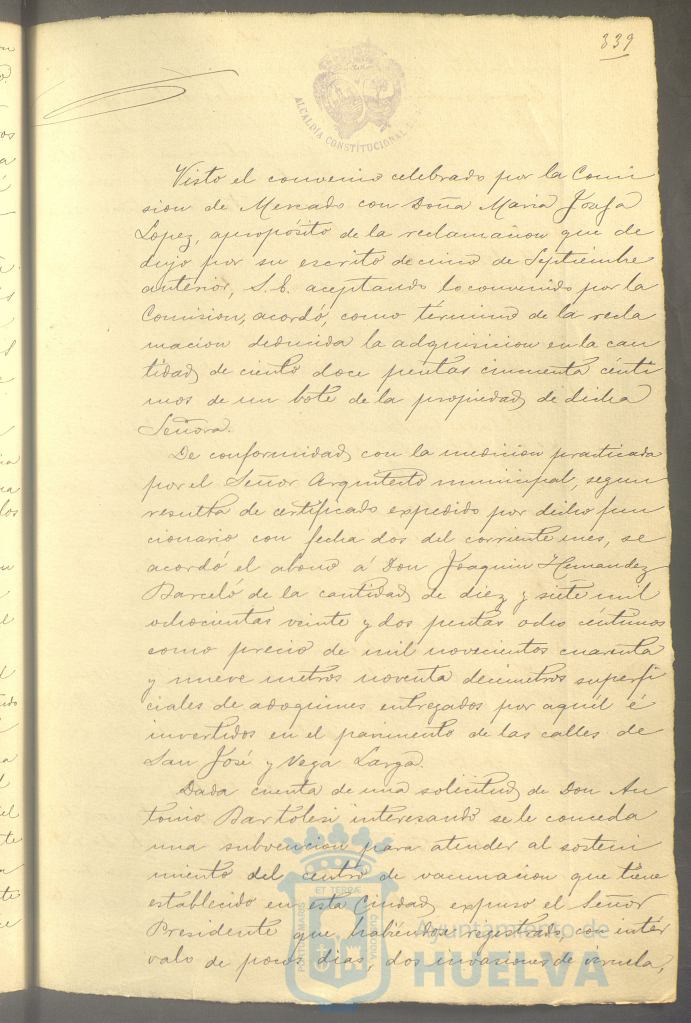 339
ALCALDÍA CONSTITUCIONAL
Visto el convenio celebrado por la Comi
sion de Mercado con Doña Maria Josefa
Lopez, aproposito de la reclamacion que de
dujo por su escrito de cinco de Septiembre
anterior, S. E. aceptando lo convenido por la
Comision, acordó, como término de la recla
macion deducida la adquisicion en la can
tidad de ciento doce pesetas cincuenta cénti
mos de un bote de la propiedad de dicha
Señora.
De conformidad con la medicion practicada
por el Señor Arquitecto municipal, segun
resulta de certificado expedido por dicho fun
cionario con fecha dos del corriente mes, se
acordó el abono á Don Joaquin Hernandez
Barceló de la cantidad de diez y siete mil
ochocientas veinte y dos pesetas ocho centimos
como precio de mil novecientos cuarenta
y nueve metros noventa decimetros superfi
ciales de adoquines entregados por aquél é
invertidos en el pavimento de las calles de
San José y Vega Larga.
Dada cuenta de una solicitud de Don An
tonio Bartolesi interesando se le conceda
una subvencion para atender al sosteni
miento del centro de vacunacion que tiene
establecido en esta Ciudad, expuso el Señor
Presidente que, habiéndose registrado, con intér
valo de pocos dias, dos invasiones de viruela,
ET TERRÆ
PORTUS MARIS
CUSTODIA
Ayuntamiento de
HUELVA